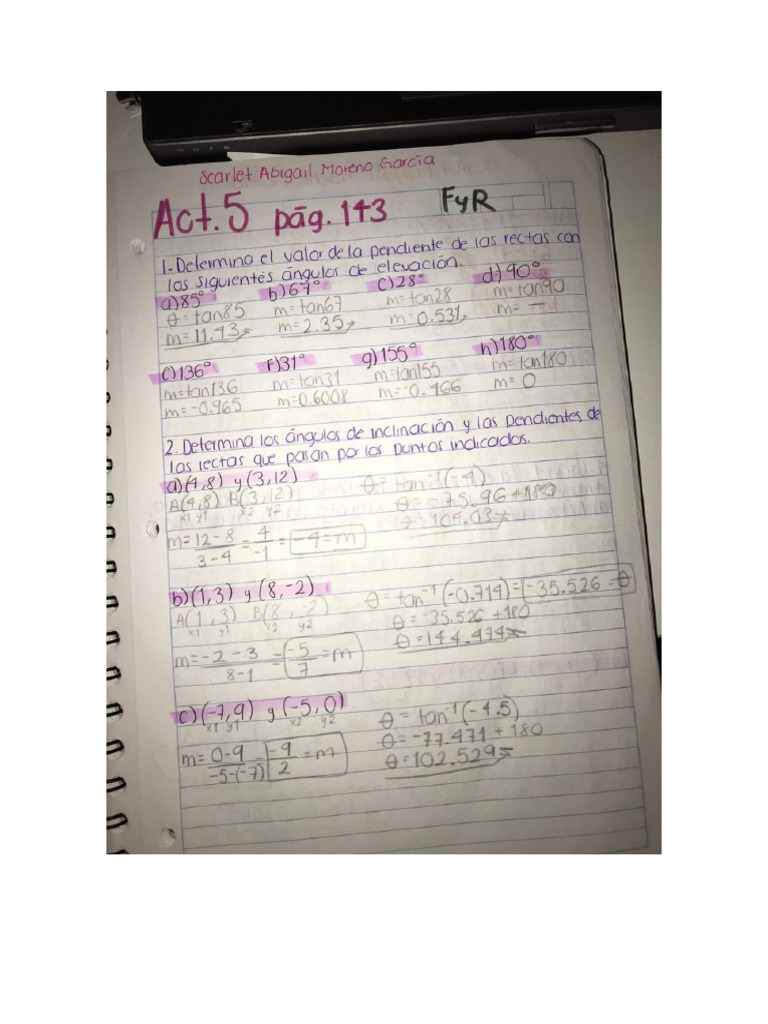 Scarlet Abigail Moreno García
Act. 5 pág. 143 FyR
1-Determina el valor de la pendiente de las rectas con
los siguientes ángulos de elevación.
a) 85° b) 67° c) 28° d) 90°
θ = tan85 m = tan67 m = tan28 m = tan90
m = 11.43 m = 2.35 m = 0.531 m =
e) 136° F) 31° g) 155° h) 180°
m = tan136 m = tan31 m = tan155 m = tan180
m = -0.965 m = 0.6008 m = -0.466 m = 0
2. Determina los ángulos de inclinación y las pendientes de
las rectas que pasan por los puntos indicados.
a) (4,8) y (3,12) θ = tan⁻¹(-4)
A(4,8) B(3,12) θ = -75.96 + 180
x1 y1 x2 y2 θ = 104.03
m = 12-8 / 3-4 = 4 / -1 = -4 = m
b) (1,3) y (8,-2) θ = tan⁻¹(-0.714) = -35.526 = θ
A(1,3) B(8,-2) θ = -35.526 + 180
x1 y1 x2 y2 θ = 144.474
m = -2-3 / 8-1 = -5 / 7 = m
c) (-7,9) y (-5,0) θ = tan⁻¹(-4.5)
x1 y1 x2 y2 θ = -77.471 + 180
m = 0-9 / -5-(-7) = -9 / 2 = m θ = 102.529